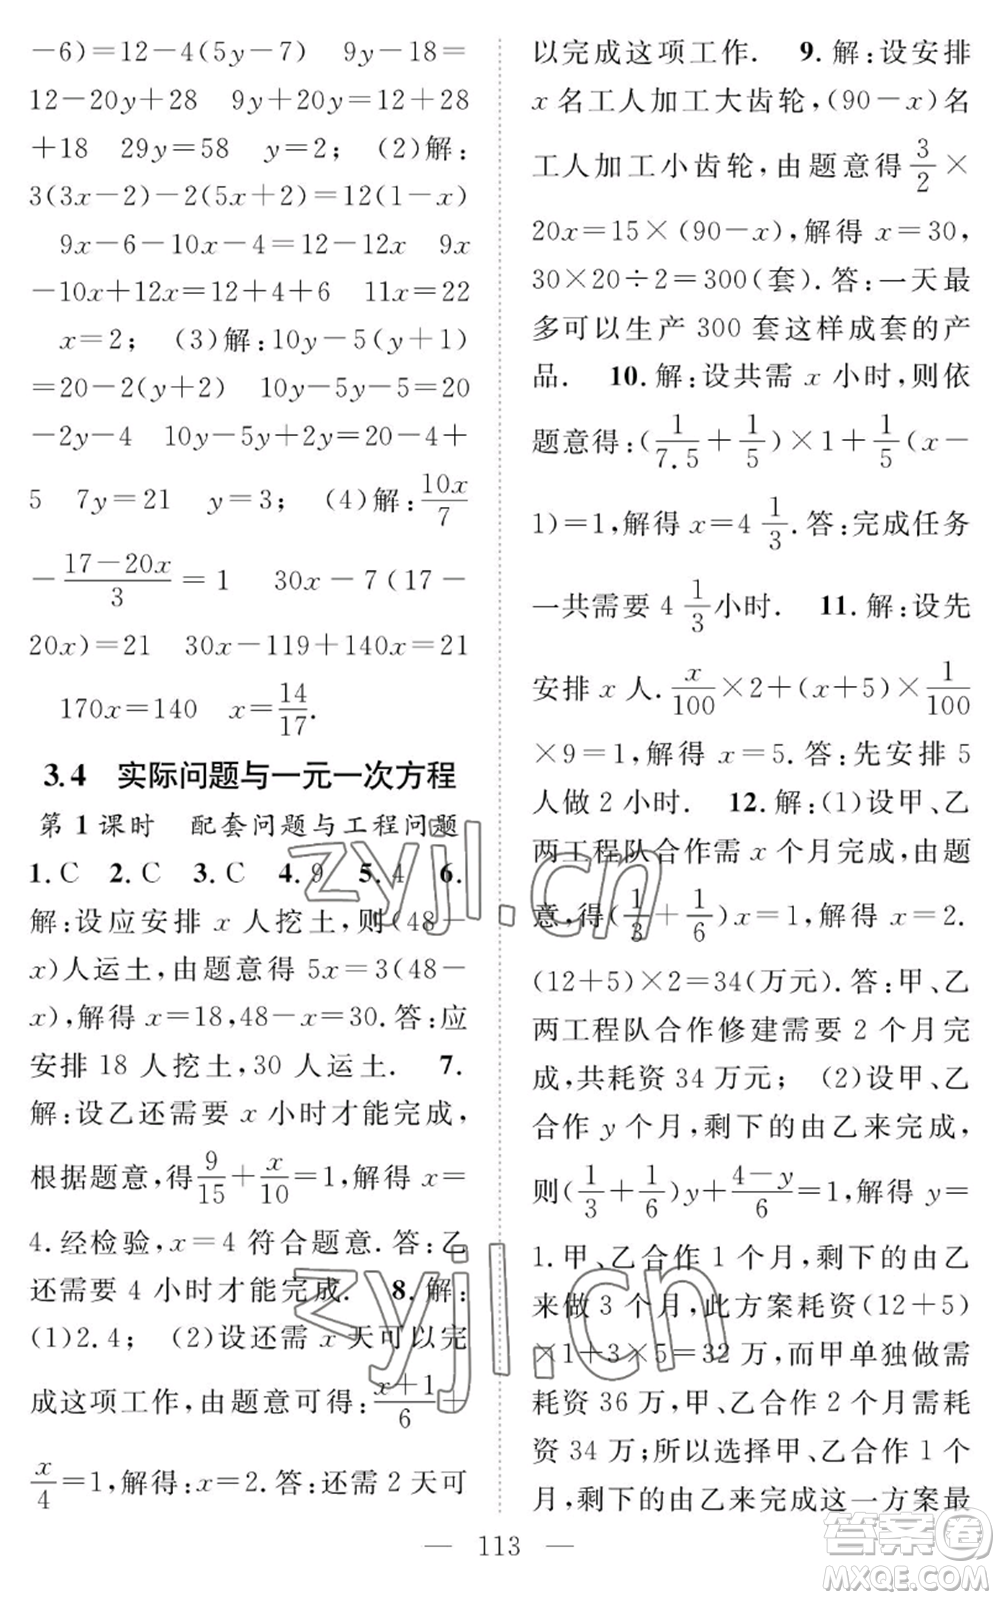 -6)=12-4(5y-7)　9y-18=
12-20y+28　9y+20y=12+28
+18　29y=58　y=2；　(2)解：
3(3x-2)-2(5x+2)=12(1-x)
9x-6-10x-4=12-12x　9x
-10x+12x=12+4+6　11x=22
x=2；　(3)解：10y-5(y+1)
=20-2(y+2)　10y-5y-5=20
-2y-4　10y-5y+2y=20-4+
5　7y=21　y=3；　(4)解：10x/7
-(17-20x)/3=1　30x-7(17-
20x)=21　30x-119+140x=21
170x=140　x=14/17.
3.4　实际问题与一元一次方程
第1课时　配套问题与工程问题
1.C　2.C　3.C　4.9　5.4　6.
解：设应安排 x 人挖土，则(48-
x)人运土，由题意得 5x=3(48-
x)，解得 x=18，48-x=30.答：应
安排 18 人挖土，30 人运土.　7.
解：设乙还需要 x 小时才能完成，
根据题意，得9/15+x/10=1，解得 x=
4.经检验，x=4 符合题意.答：乙
还需要 4 小时才能完成.　8.解：
(1)2.4；　(2)设还需 x 天可以完
成这项工作，由题意可得：(x+1)/6+
x/4=1，解得：x=2.答：还需 2 天可
以完成这项工作.　9.解：设安排
x 名工人加工大齿轮，(90-x)名
工人加工小齿轮，由题意得3/2×
20x=15×(90-x)，解得 x=30，
30×20÷2=300(套).答：一天最
多可以生产 300 套这样成套的产
品.　10.解：设共需 x 小时，则依
题意得：(1/7.5+1/5)×1+1/5(x-
1)=1，解得 x=4 1/3.答：完成任务
一共需要 4 1/3小时.　11.解：设先
安排 x 人.x/100×2+(x+5)×1/100
×9=1，解得 x=5.答：先安排 5
人做 2 小时.　12.解：(1)设甲、乙
两工程队合作需 x 个月完成，由题
意，得(1/3+1/6)x=1，解得 x=2.
(12+5)×2=34(万元).答：甲、乙
两工程队合作修建需要 2 个月完
成，共耗资 34 万元；　(2)设甲、乙
合作 y 个月，剩下的由乙来完成，
则(1/3+1/6)y+(4-y)/6=1，解得 y=
1.甲、乙合作 1 个月，剩下的由乙
来做 3 个月，此方案耗资(12+5)
×1+3×5=32 万，而甲单独做需
耗资 36 万，甲、乙合作 2 个月需耗
资 34 万；所以选择甲、乙合作 1 个
月，剩下的由乙来完成这一方案最
— 113 —
zyjl.cn
zyjl.cn
答案卷
MXQE.COM